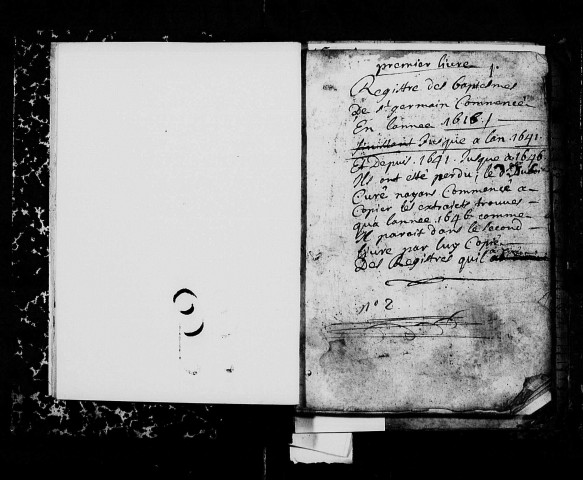 premier liure 1.
Registre des baptesmes
De st germain Commencé
En lannee 1618
Jusque a lan 1641.
Et depuis 1641. Jusque a 1646
Ils ont esté perdu, le Sr
Curé nayans Commencé a
Copier les extraicts trouues
qua lannee 1646 comme
Il paroit dans le second
liure par luy Copié
Des Registres quil a
n° 2